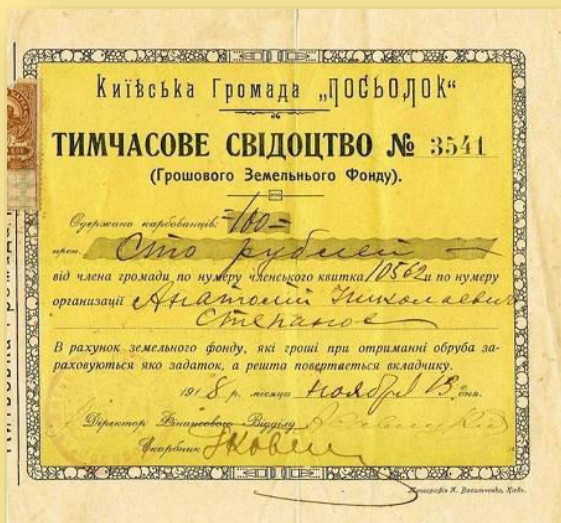 Київська Громада „ПОСЬОЛОК“
ТИМЧАСОВЕ СВІДОЦТВО № 3541
(Грошового Земельнього Фонду).
Одержано карбованців: =100=
проп. Сто рублей
від члена громади по нумеру членського квитка 10562 и по нумеру
організації Анатолій Николаевич
Степанов
В рахунок земельного фонду, які гроші при отриманні обруба за-
раховуються яко задаток, а решта повертається вкладчику.
1918 р. місяця ноября 13 дня.
Директор Фінансового Відділу
Скарбник
Київ.